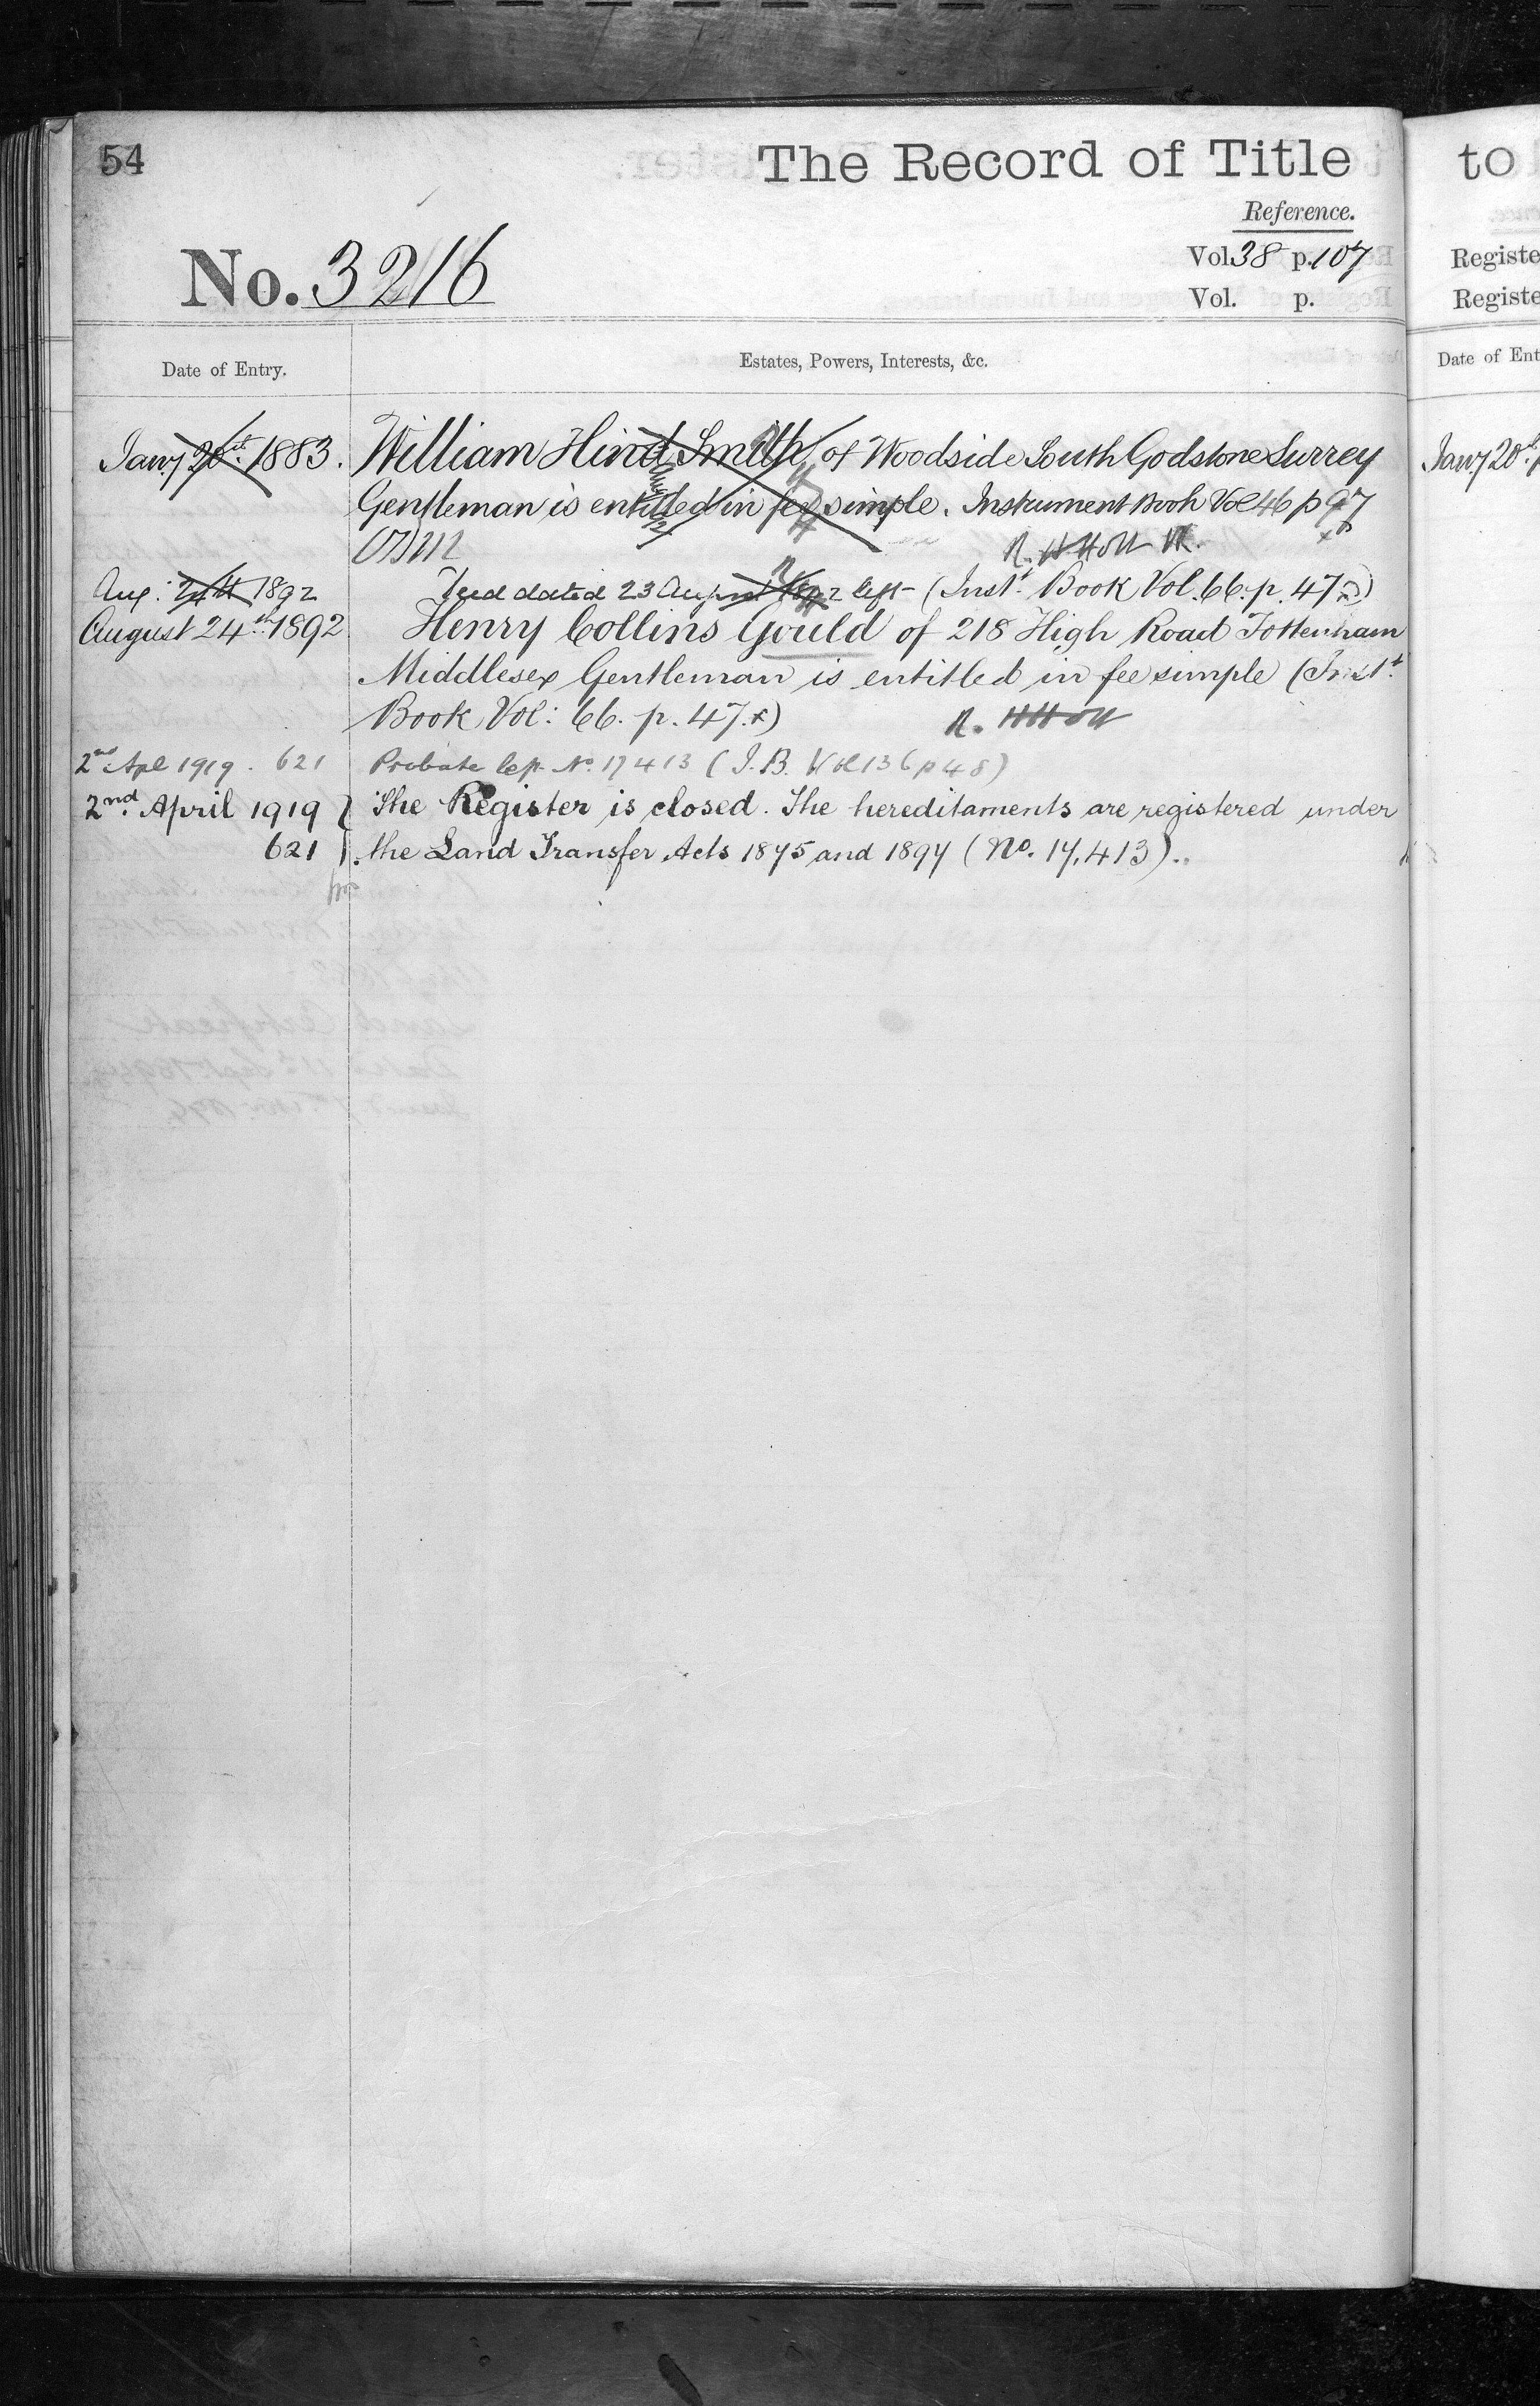 54
The Record of Title
Reference.
No. 3216
Vol. 38 p. 107
Vol. p.
Date of Entry.
Estates, Powers, Interests, &c.
Jany 20th 1883. William Hind Smith, of Woodside South Godstone Surrey
Gentleman is entitled in fee simple. Instrument Book Vol 46 p 97
Aug: 24th 1892 Deed dated 23 August 1892 left (Inst^t Book Vol. 66. p. 47.)
August 24th 1892 Henry Collins Gould of 218 High Road Tottenham
Middlesex Gentleman is entitled in fee simple (Inst^t
Book Vol: 66. p. 47.x) R. H Holt
2nd Apl 1919. 621 Probate No. 17413 (I.B. Vol 136 p 48)
2nd April 1919 } The Register is closed. The hereditaments are registered under
621 }. the Land Transfer Acts 1875 and 1897 (No. 17,413).
to
Registe
Registe
Date of Ent
Jany 20th